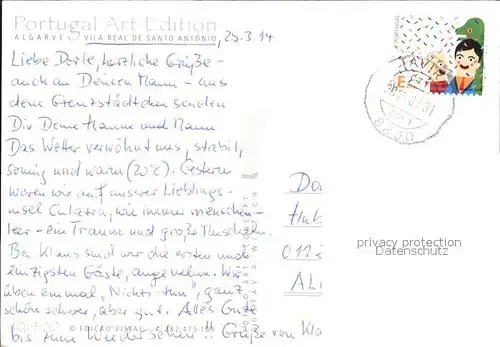 Portugal Art Edition
ALGARVE VILA REAL DE SANTO ANTÓNIO
25.3.14
Liebe Dorle, herzliche Grüße -
auch an Deinen Mann - aus
dem Grenzstädtchen senden
Dir Deine Hanne und Mann
Das Wetter verwöhnt uns, stabil,
sonnig und warm (20°C). Gestern
waren wir auf unserer Lieblings-
insel Culatra, wie immer menschen-
leer - ein Traum und große Muscheln.
Bei Klaus sind wir die ersten und
einzigsten Gäste, angenehm. Wir
üben einmal "Nichts-tun", ganz
schön schwer, aber gut. Alles Gute
bis zum Wiedersehen!! Grüße von Kla
© EDIÇÃO VISTAL
PORTUGAL
E
8800
Do
011
AL
privacy protection
www.ansichtskarten-center.de